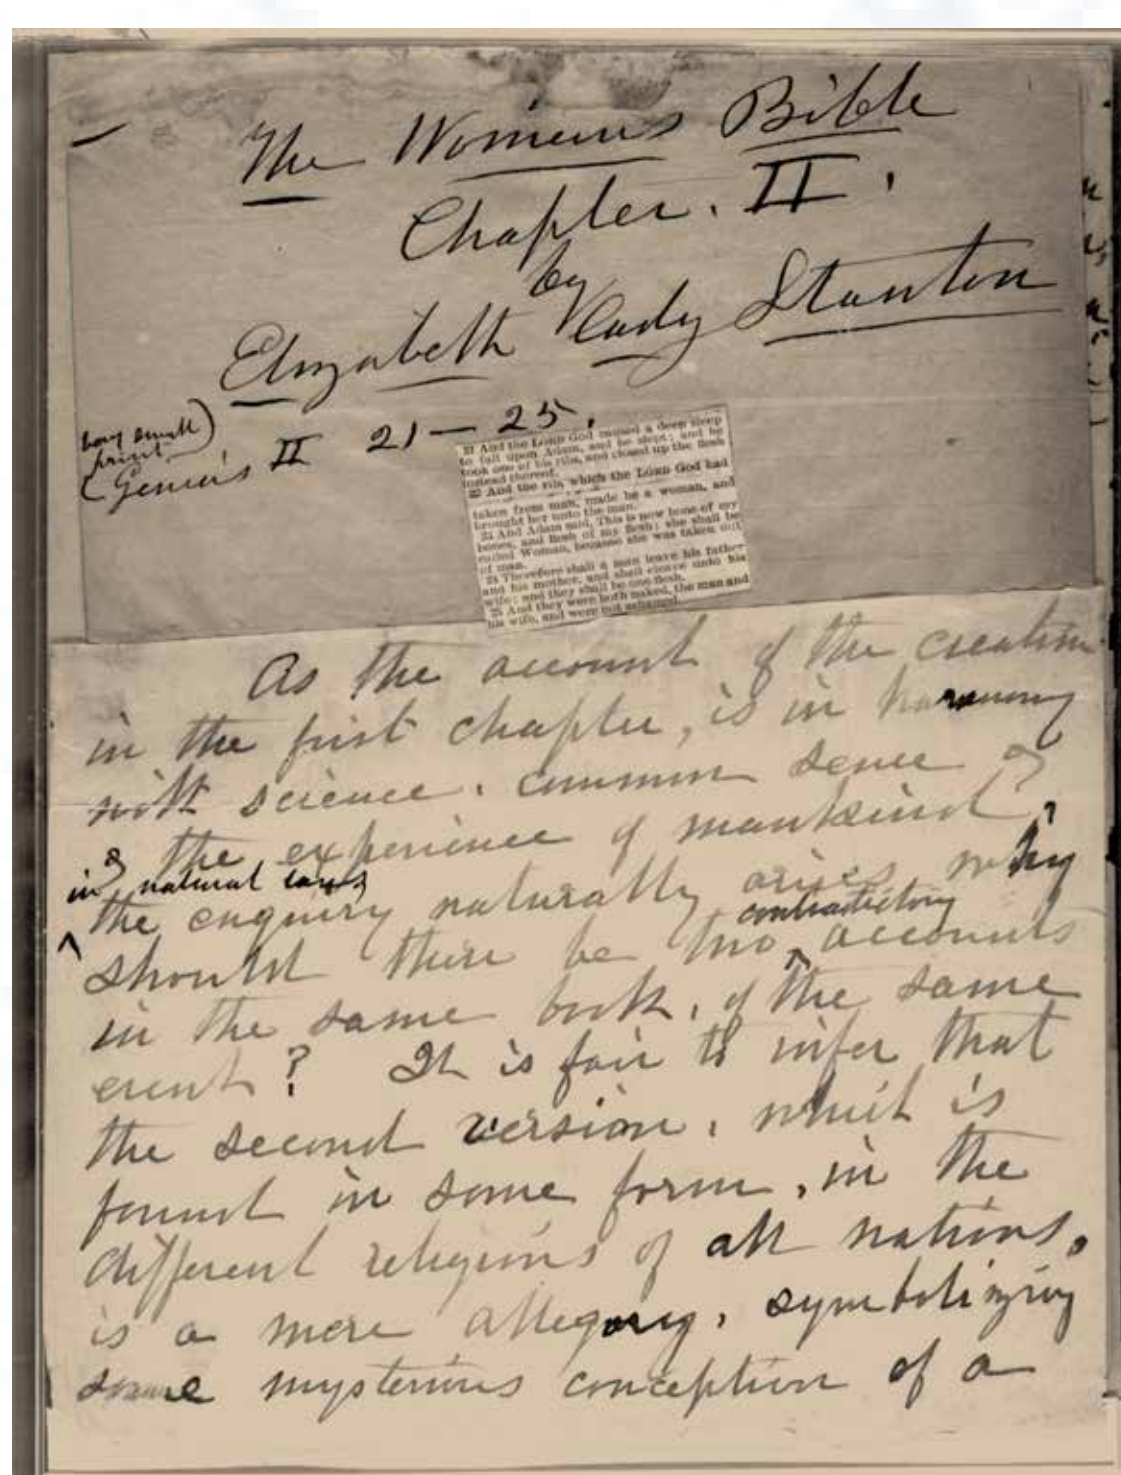 The Woman's Bible
Chapter. II.
by
Elizabeth Cady Stanton
print
(Genesis II 21–25.
21 And the LORD God caused a deep sleep
to fall upon Adam, and he slept; and he
took one of his ribs, and closed up the flesh
instead thereof.
22 And the rib, which the LORD God had
taken from man, made he a woman, and
brought her unto the man.
23 And Adam said, This is now bone of my
bones, and flesh of my flesh: she shall be
called Woman, because she was taken out
of man.
24 Therefore shall a man leave his father
and his mother, and shall cleave unto his
wife: and they shall be one flesh.
25 And they were both naked, the man and
his wife, and were not ashamed.
As the account of the creation
in the first chapter, is in harmony
with science, common sense &
the experience of mankind,
in natural laws
the enquiry naturally arises, why
contradictory
should there be two accounts
in the same book, of the same
event? It is fair to infer that
the second version, which is
found in some form, in the
different religions of all nations,
is a mere allegory, symbolizing
some mysterious conception of a